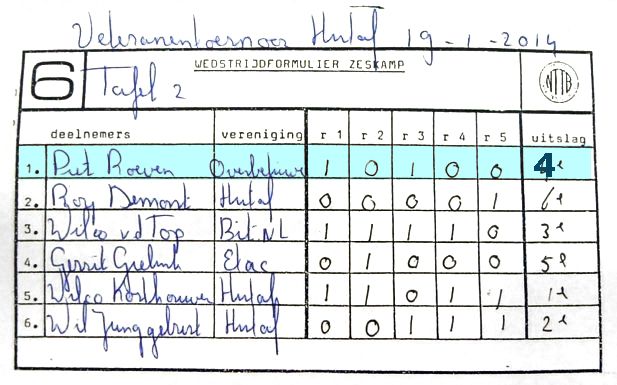 Veteranentoernooi Hutaf 19-1-2014
6 WEDSTRIJDFORMULIER ZESKAMP NTTB
Tafel 2
deelnemers vereniging r 1 r 2 r 3 r 4 r 5 uitslag
1. Piet Roeven Overbetuwe 1 0 1 0 0 4e
2. Roy Demont Hutaf 0 0 0 0 1 6e
3. Wilco vd Top Bit NL 1 1 1 1 0 3e
4. Gerrit Elac 0 1 0 0 0 5e
5. Wilco Korthouwer Hutaf 1 1 0 1 1 1e
6. Wil Junggeburt Hutaf 0 0 1 1 1 2e